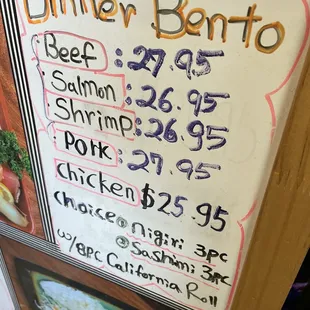 Dinner Bento
Beef : 27.95
Salmon : 26.95
Shrimp : 26.95
Pork : 27.95
Chicken $25.95
Choice @ Nigiri 3pc
@ Sashimi 3pc
w/8PC California Roll